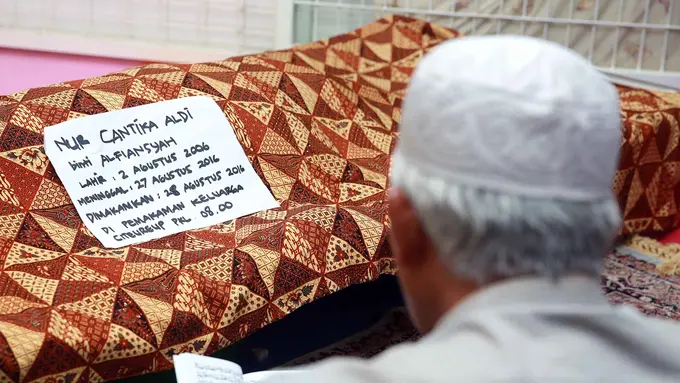 NUR CANTIKA ALDI
binti ALFIANSYAH
LAHIR : 2 AGUSTUS 2006
MENINGGAL : 27 AGUSTUS 2016
DIMAKAMKAN : 28 AGUSTUS 2016
DI PEMAKAMAN KELUARGA
CIBURGUP PKL 08.00